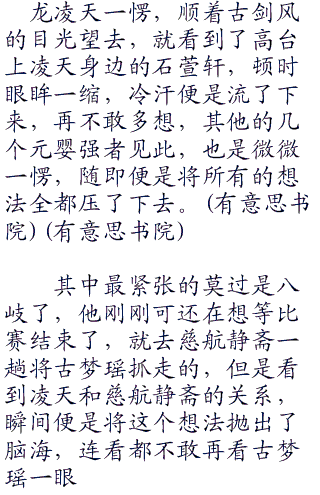 龙凌天一愣，顺着古剑风
的目光望去，就看到了高台
上凌天身边的石萱轩，顿时
眼眸一缩，冷汗便是流了下
来，再不敢多想，其他的几
个元婴强者见此，也是微微
一愣，随即便是将所有的想
法全都压了下去。(有意思书
院)(有意思书院)
其中最紧张的莫过是八
岐了，他刚刚可还在想等比
赛结束了，就去慈航静斋一
趟将古梦瑶抓走的，但是看
到凌天和慈航静斋的关系，
瞬间便是将这个想法抛出了
脑海，连看都不敢再看古梦
瑶一眼